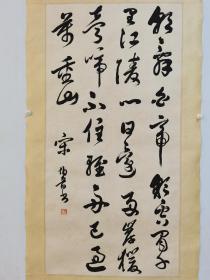 朝辭白帝彩雲間千
里江陵一日還兩岸猿
聲啼不住輕舟已過
萬重山
宋
書